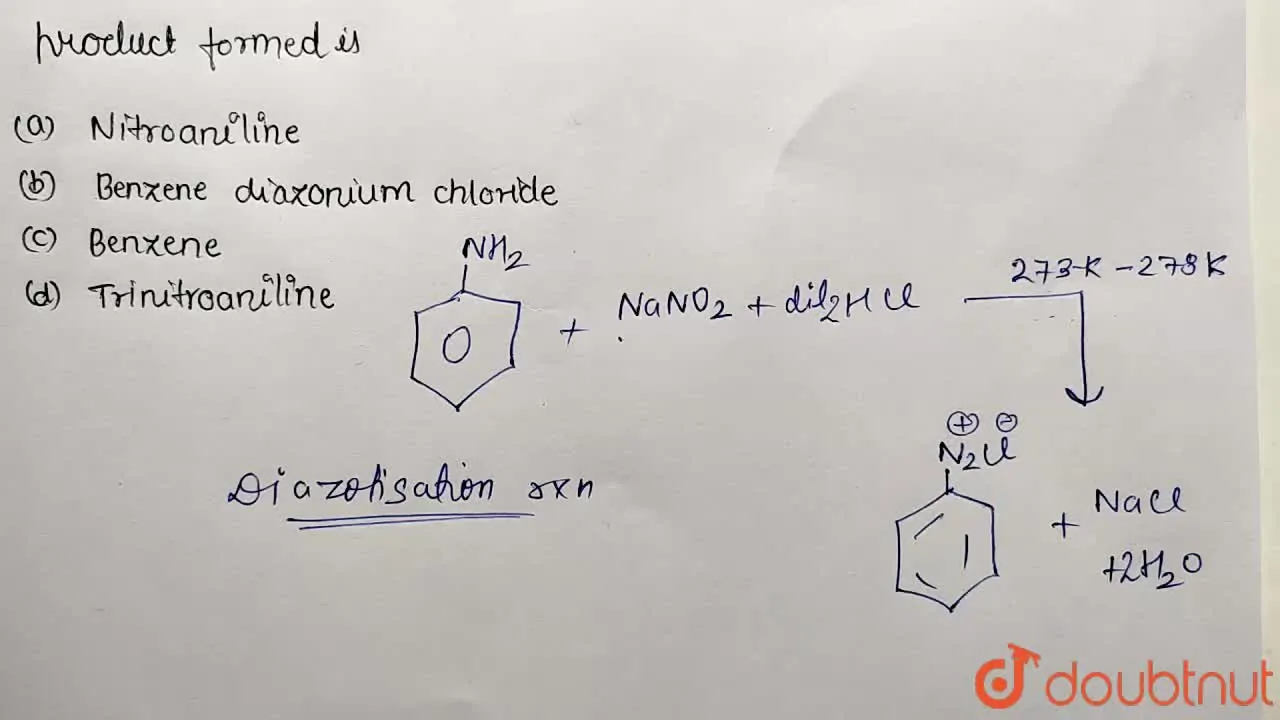 product formed is
(a) Nitroaniline
(b) Benzene diazonium chloride
(c) Benzene
(d) Trinitroaniline
NH2
+ NaNO2 + dil 2HCl
273K - 278K
⊕ ⊖
N2Cl
+ NaCl
+2H2O
Diazotisation rxn
doubtnut